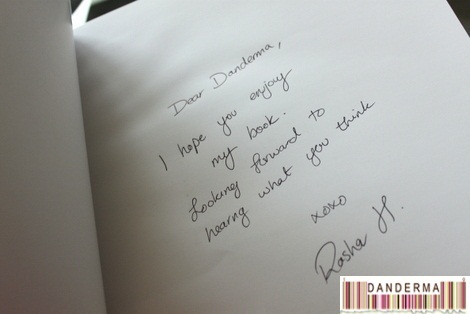 Dear Danderma,
I hope you enjoy
my book.
Looking forward to
hearng what you think
xoxo
Rasha H.
DANDERMA